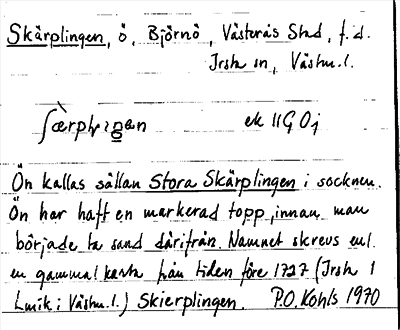 Skärplingen, ö, Björnö, Västerås Stad, f.d.
Irsta sn, Västm.l.
ek 11G 0j
Ön kallas sällan Stora Skärplingen i socknen.
Ön har haft en markerad topp, innan man
började ta sand därifrån. Namnet skrevs enl.
en gammal karta från tiden före 1727 (Irsta 1
Lmk i Västm.l.) Skierplingen. P.O. Kohls 1970